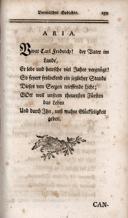 Vermischte Gedichte. 159
ARIA.
Vivat Carl Friedrich! der Vater im
Lande,
Er lebe und herrsche viel Jahre vergnügt!
So seyret frolockend ein jeglicher Stande
Diesen von Seegen triefende
GOtt woll unserm theuresten Fürsten
das Leben
Und durch Ihn, uns wahre Glückseligkeit
geben.
CAN-